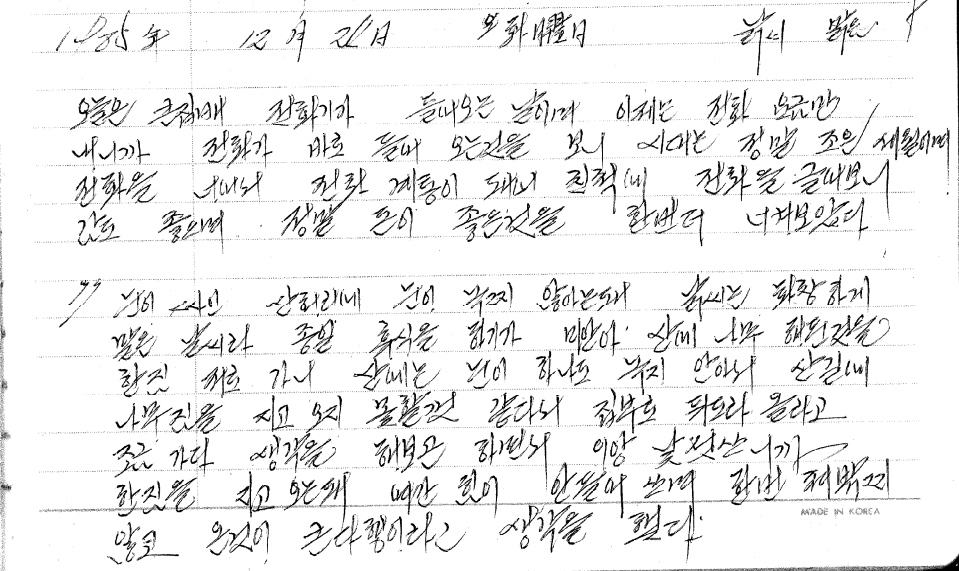 1985年 12月 24日 火曜日 날씨 맑음
오늘은 큰집에 전화기가 들어오는 날이며 이제는 전화 요금만
내니까 전화가 바로 들어 오는것을 보니 시대는 정말 조은 세월이며
전화를 너어서 전화 개통이 돼서 친척에 전화를 걸어보니
감도 좋으며 정말 돈이 좋은것을 한번더 너껴보았다
눈이 싸인 산허리에 눈이 녹찌 않아는대 날씨는 화창하게
맑은 날씨라 종일 휴식을 하기가 미안아 산에 나무 해된것을
한짐 지로 가니 산에는 눈이 하나도 녹지 안아서 산길에
나무짐을 지고 오지 못할것 같다서 집부로 뒤도라 올라고
조금 가다 생각을 해보고 하면서 이왕 낮젓스니까
한짐을 지고 오는대 여간 힘이 안들어 쓰며 한번 저빡찌
않고 온것이 큰다행이라고 생각을 했다.
MADE IN KOREA